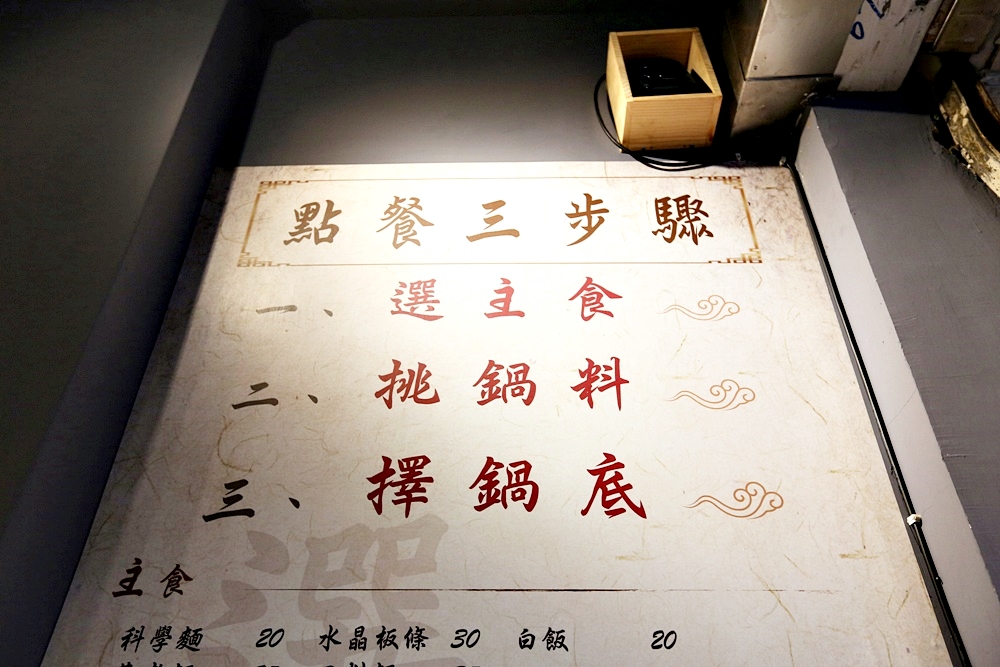 點餐三步驟
一、選主食
二、挑鍋料
三、擇鍋底
選
主食
科學麵 20 水晶板條 30 白飯 20